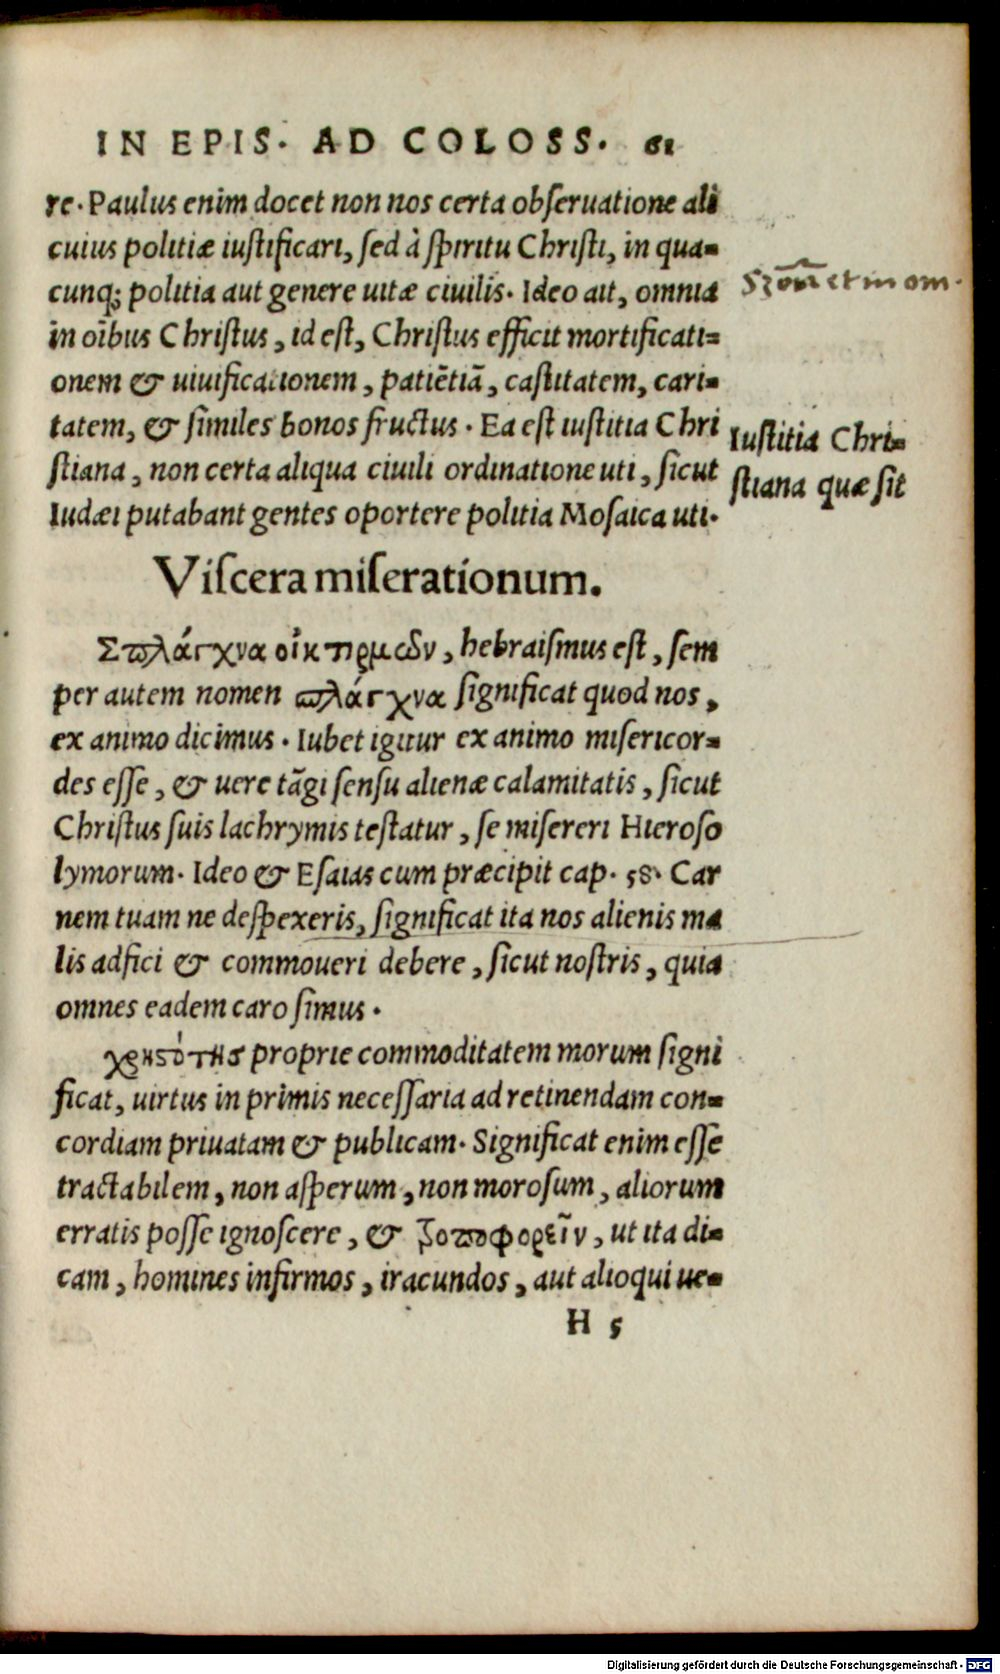 IN EPIS. AD COLOSS. 61
re. Paulus enim docet non nos certa obſeruatione ali
cuius politiæ iuſtificari, ſed à ſpiritu Chriſti, in qua-
cunq; politia aut genere uitæ ciuilis. Ideo ait, omnia
in oĩbus Chriſtus, id eſt, Chriſtus efficit mortificati-
onem & uiuificationem, patiẽtiã, caſtitatem, cari-
tatem, & ſimiles bonos fructus. Ea eſt iuſtitia Chri
ſtiana, non certa aliqua ciuili ordinatione uti, ſicut
Iudæi putabant gentes oportere politia Moſaica uti.
et in om.
Iuſtitia Chri-
ſtiana quæ ſit
Viſcera miſerationum.
Σπλάγχνα οἰκτιρμῶν, hebraiſmus eſt, ſem
per autem nomen πλάγχνα ſignificat quod nos,
ex animo dicimus. Iubet igitur ex animo miſericor-
des eſſe, & uere tãgi ſenſu alienæ calamitatis, ſicut
Chriſtus ſuis lachrymis teſtatur, ſe miſereri Hieroſo
lymorum. Ideo & Eſaias cum præcipit cap. 58. Car
nem tuam ne deſpexeris, ſignificat ita nos alienis ma
lis adfici & commoueri debere, ſicut noſtris, quia
omnes eadem caro ſimus.
χρηϛότης proprie commoditatem morum ſigni
ficat, uirtus in primis neceſſaria ad retinendam con-
cordiam priuatam & publicam. Significat enim eſſe
tractabilem, non aſperum, non moroſum, aliorum
erratis poſſe ignoſcere, & ϛοποφορεῖν, ut ita di-
cam, homines infirmos, iracundos, aut alioqui ue-
H 5
Digitalisierung gefördert durch die Deutsche Forschungsgemeinschaft - DFG